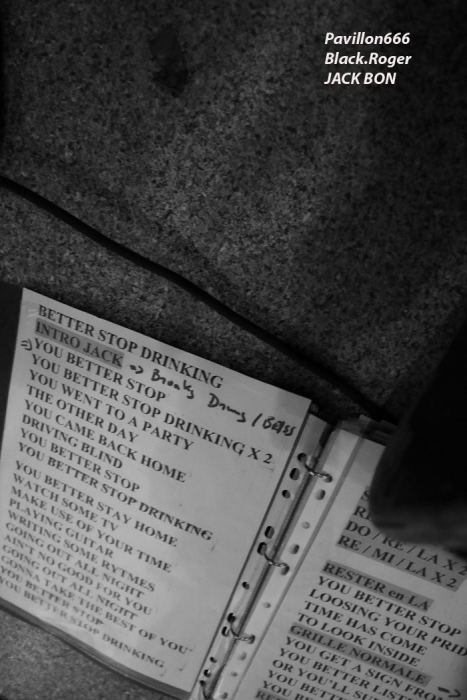 Pavillon666
Black.Roger
JACK BON
BETTER STOP DRINKING
INTRO JACK => Breaks Drums / Bass
=> YOU BETTER STOP
YOU BETTER STOP DRINKING X 2
YOU WENT TO A PARTY
THE OTHER DAY
YOU CAME BACK HOME
DRIVING BLIND
YOU BETTER STOP
YOU BETTER STOP DRINKING
YOU BETTER STAY HOME
WATCH SOME TV
MAKE USE OF YOUR TIME
PLAYING GUITAR
WRITING SOME RYTMES
GOING OUT ALL NIGHT
AIN'T NO GOOD FOR YOU
GOING OUT ALL NIGHT
GONNA TAKE THE BEST OF YOU
YOU BETTER STOP
YOU BETTER STOP DRINKING
DO / RE / LA X 2
RE / MI / LA X 2
RESTER en LA
YOU BETTER STOP
LOOSING YOUR PRID
TIME HAS COME
TO LOOK INSIDE
GRILLE NORMALE
YOU GET A SIGN FR
YOU BETTER
OR YOU'LL
YOU BET